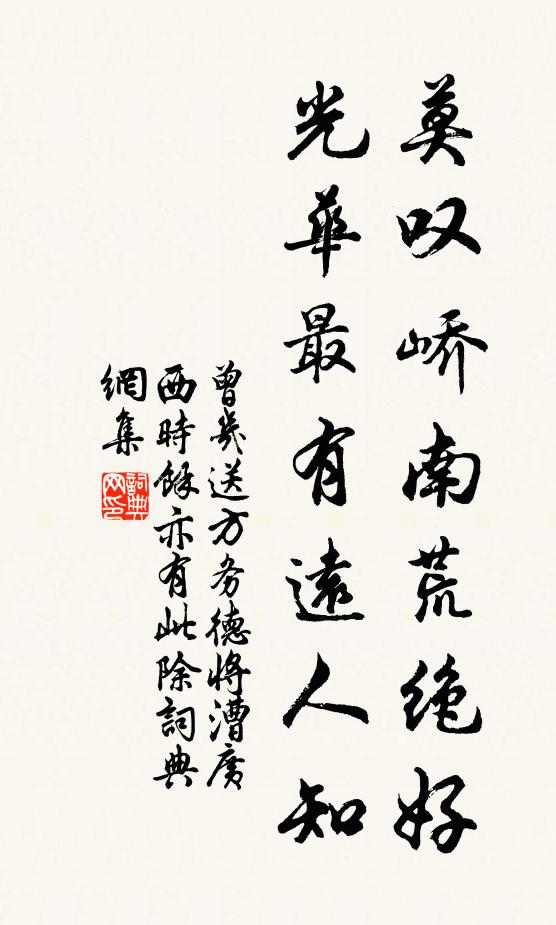 莫叹峤南荒绝好
光華最有遠人知
曾幾送方务德将漕廣
西時餘亦有此除詞典
網集
詞典网印